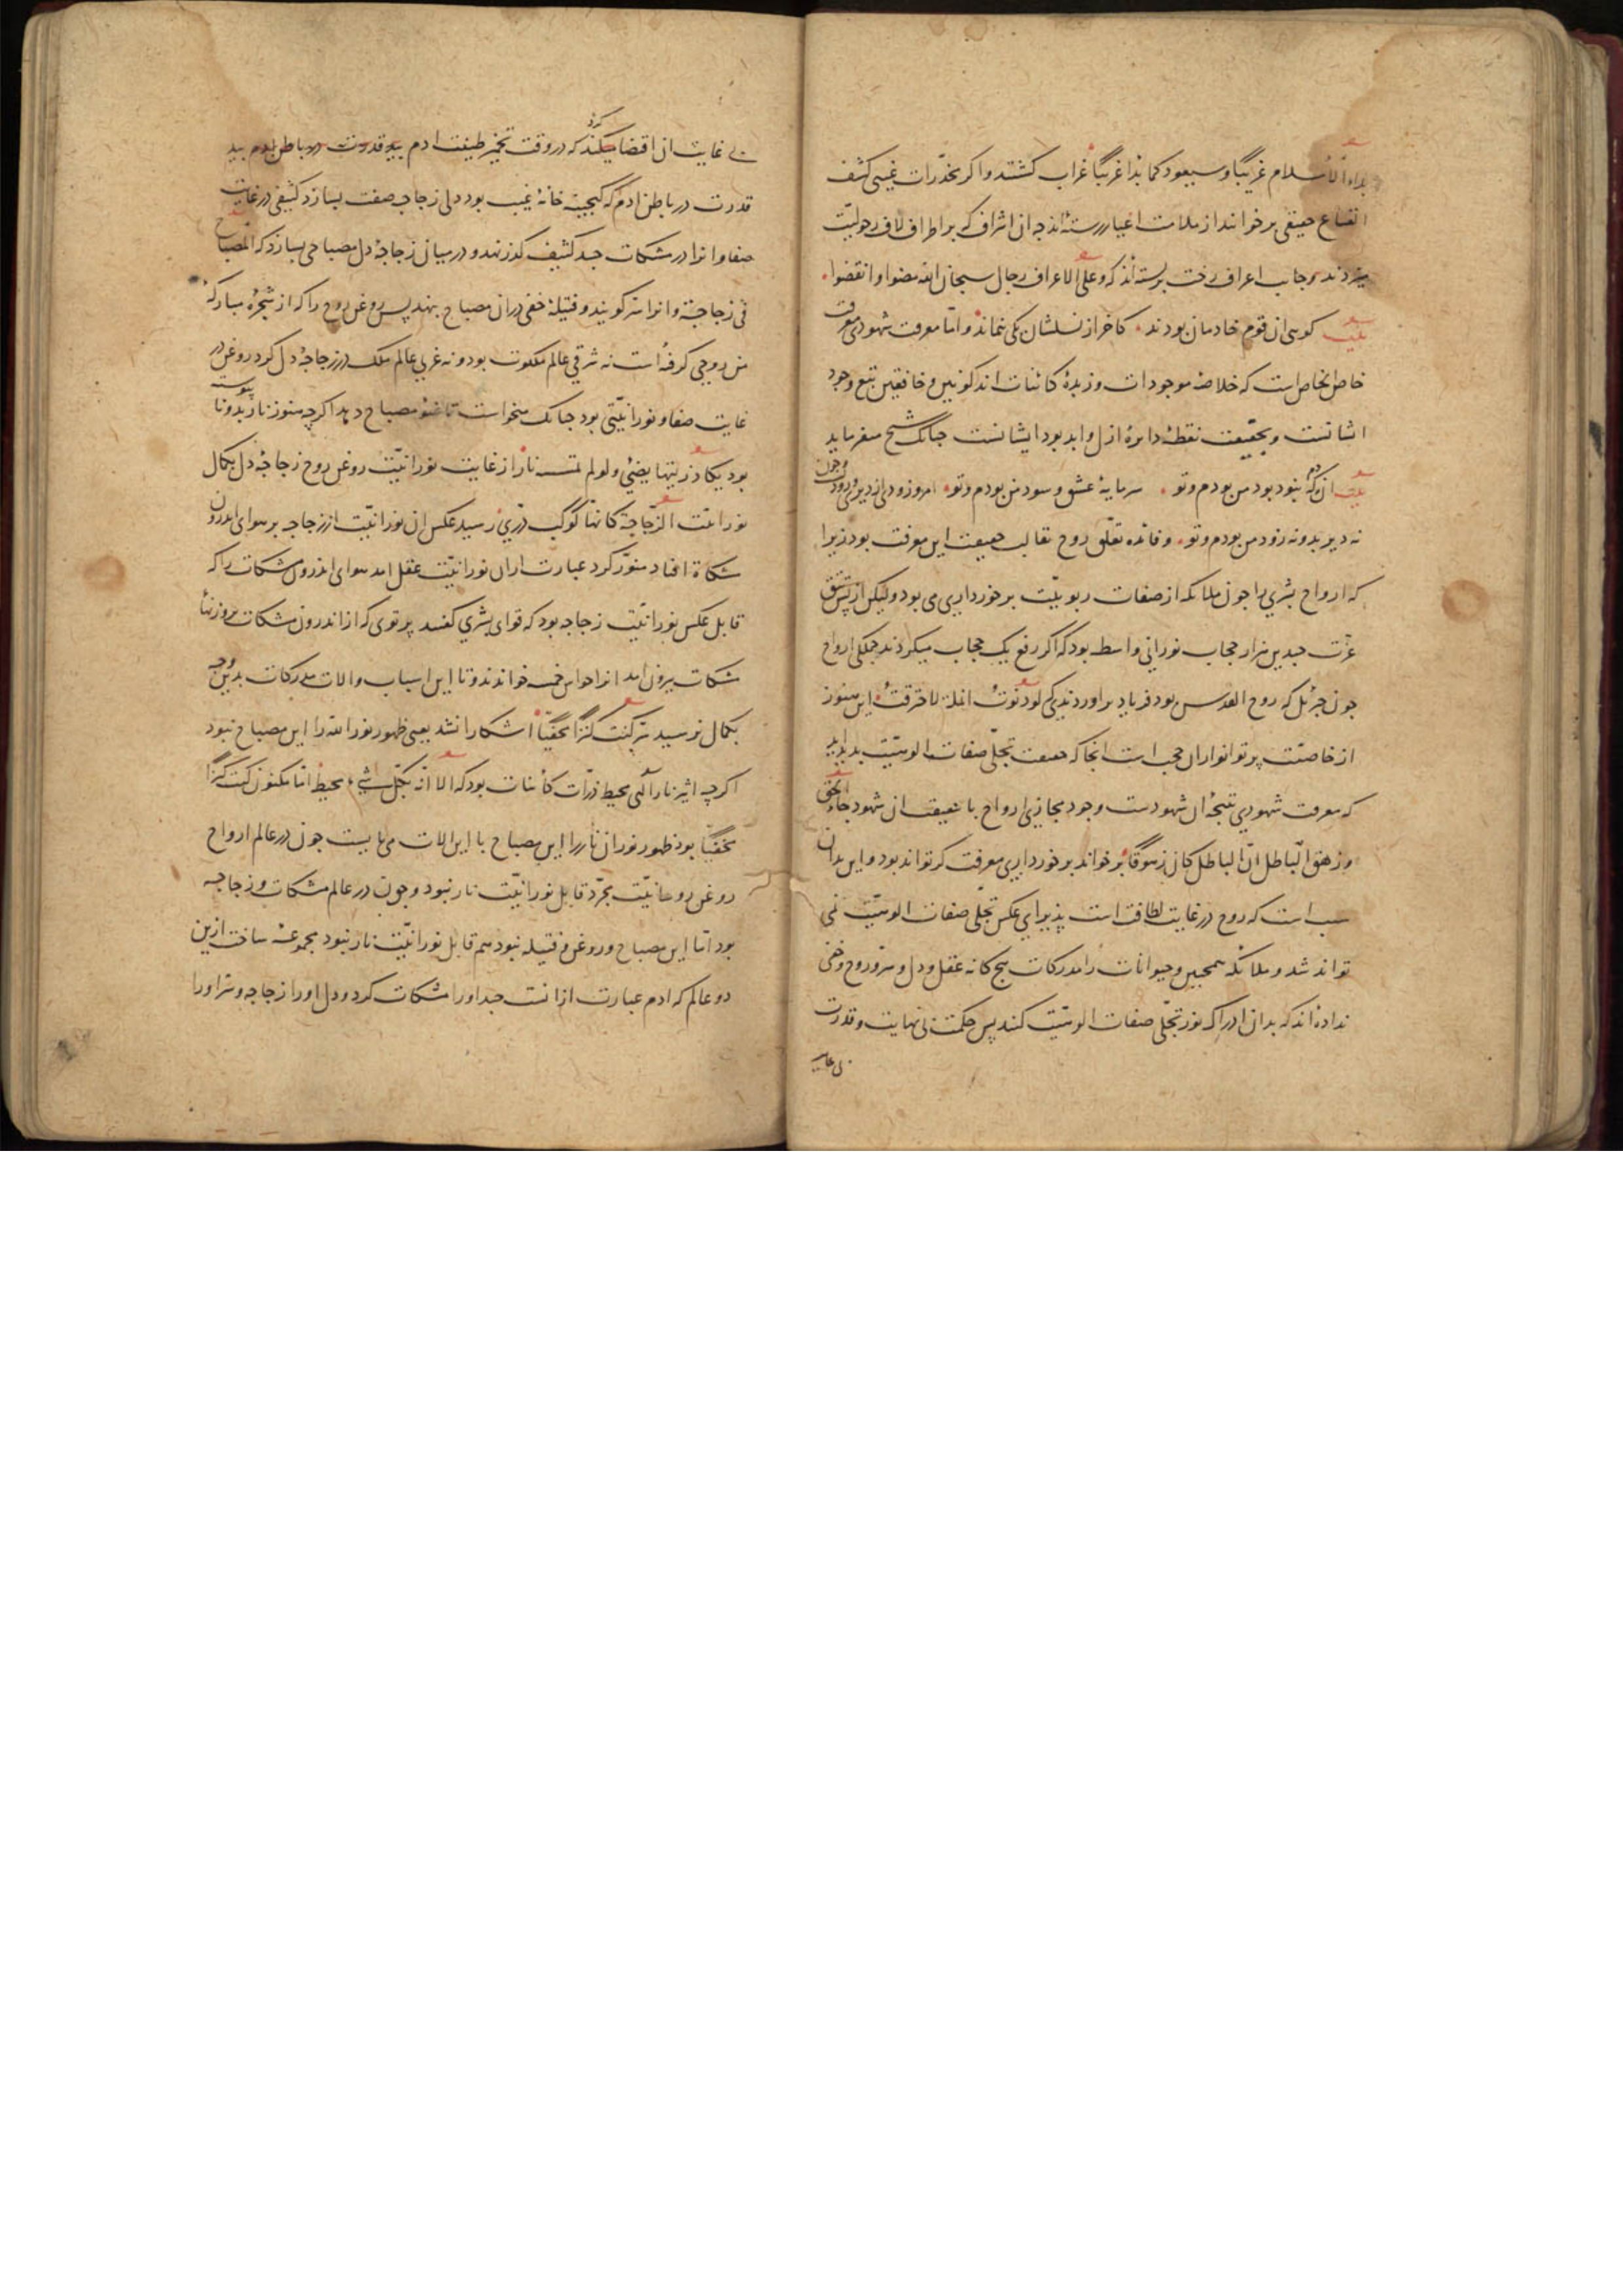 بداء الاسلام غریبًا و سیعود کما بدا غریبًا غراب کشتند و اکر مخدّرات غیبی کشف
انقطاع حقیقی برخوانند از ملامت اغیار رسته‌اند چه ان اشراف که بر اطراف لاف رجولیّت
میزدند بجانب اعراف رخت بربسته‌اند که و علی الاعراف رجال سبحان الله مضوا و انقضوا
بیت کویی ان قوم خادمان بودند کاخر از نسلشان یکی بنماند و اما معرفت شهودی معرفت
خاص الخاص است که خلاصهٔ موجودات و زبدهٔ کائنات اند کونین و خافقین تبع وجود
ایشانست و بحقیقت نقطهٔ دایرهٔ ازل و ابد بود ایشانست چنانک شیخ میفرماید
بیت ان دم که نبود بود من بودم و تو سرمایهٔ عشق و سود من بودم و تو امروز و دی از دیر و زود وجون
نه دیر بد و نه زود من بودم و تو و فائده تعلّق روح بقالب حقیقت این معرفت بود زیرا
که ارواح بشری را جون ملائکه از صفات ربوبیّت برخورداری می بود ولیکن از پس تتق
عزّت جندین هزار حجاب نورانی واسطه بود که اکر رفع یک حجاب میکردند جملکی ارواح
جون جبرئیل که روح القدس بود فریاد براوردندی که لو دنوت انملة لاحترقت این هنوز
از خاصیّت پرتو انوار ان حجب است انجا که حقیقت تجلّی صفات الوهیّت بدید اید
که معرفت شهودی نتیجهٔ ان شهودست وجود مجازی ارواح با حقیقت ان شهود جاء الحق
و زهق الباطل انّ الباطل کان زهوقًا برخواند برخورداری معرفت که تواند بود و این بدان
سبب است که روح در غایت لطافت است پذیرای عکس تجلّی صفات الوهیّت نمی
تواند شد و ملائکه همچنین و حیوانات را مدرکات پنج کانه عقل و دل و سرّ و روح و خفی
نداده‌اند که بدان ادراک نور تجلّی صفات الوهیّت کنند پس حکمت بی نهایت و قدرت
بی غایت
بی غایت ان اقتضا میکند کرد که در وقت تخمیر طینت ادم بید قدرت در باطن ادم بید
قدرت در باطن ادم که کنجینه خانهٔ غیب بود دلی زجاجه صفت بسازد کثیفی در غایت
صفا و انرا در مشکات جسد کثیف کدر نهد و در میان زجاجهٔ دل مصباحی بسازد که المصباح
فی زجاجة و انرا سر کویند و فتیلهٔ خفی در ان مصباح بنهد پس روغن روح را که از شجرهٔ مبارکهٔ
من روحی کرفته است نه شرقی عالم ملکوت بود و نه غربی عالم ملک در زجاجهٔ دل کرد روغن در
غایت صفا و نورانیّتی بود جنانک میخواست تا ضوء مصباح دهد اکرچه هنوز نار بدو نا پیوسته
بود یکاد زیتها یضیٔ و لو لم تمسسه نار از غایت نورانیّت روغن روح زجاجهٔ دل بکمال
نورانیّت الزّجاجة کانها کوکب درّیّ رسید عکس ان نورانیّت از زجاجه بر هوای اندرون
مشکاة افتاد منوّر کرد عبارت از ان نورانیّت عقل امد هوای اندرون مشکات را که
قابل عکس نورانیّت زجاجه بود که قوای بشری کفتند پرتوی که از اندرون مشکات بروزنهاء
مشکات بیرون امد انرا حواس خمسه خواندند و تا این اسباب و الات مدرکات بدین وجه
بکمال نرسید سرّ کنت کنزًا مخفیًّا اشکارا نشد یعنی ظهور نور الله را این مصباح نبود
اکرچه اثیر نار الهی محیط ذرّات کائنات بود که الا انّه بکلّ شیء محیط امّا مکنون کنت کنزًا
مخفیًّا بود ظهور نور ان نار را این مصباح با این الات می بایست جون در عالم ارواح
روغن روحانیّت مجرّد قابل نورانیّت نار نبود و جون در عالم مشکات و زجاجه
بود امّا این مصباح و روغن و فتیله نبود هم قابل نورانیّت نار نبود مجموعهٔ ساخت ازین
دو عالم که ادم عبارت از انست جسد او را مشکات کرد و دل او را زجاجه و سرّ او را